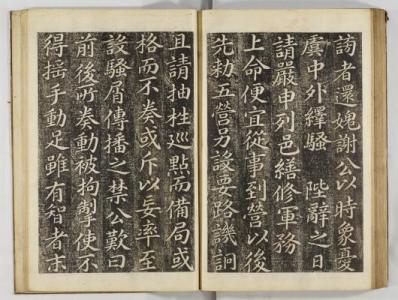 訪者還媿謝公以時象憂
虞中外繹騷　陛辭之日
請嚴申列邑繕修軍務
上命便宜從事到營以後
先勑五營另設要路譏詗
且請抽栍巡點而備局或
格而不奏或斥以妄率至
設騷屑傳播之禁公歎曰
前後所奏動被拘掣使不
得搖手動足雖有智者末